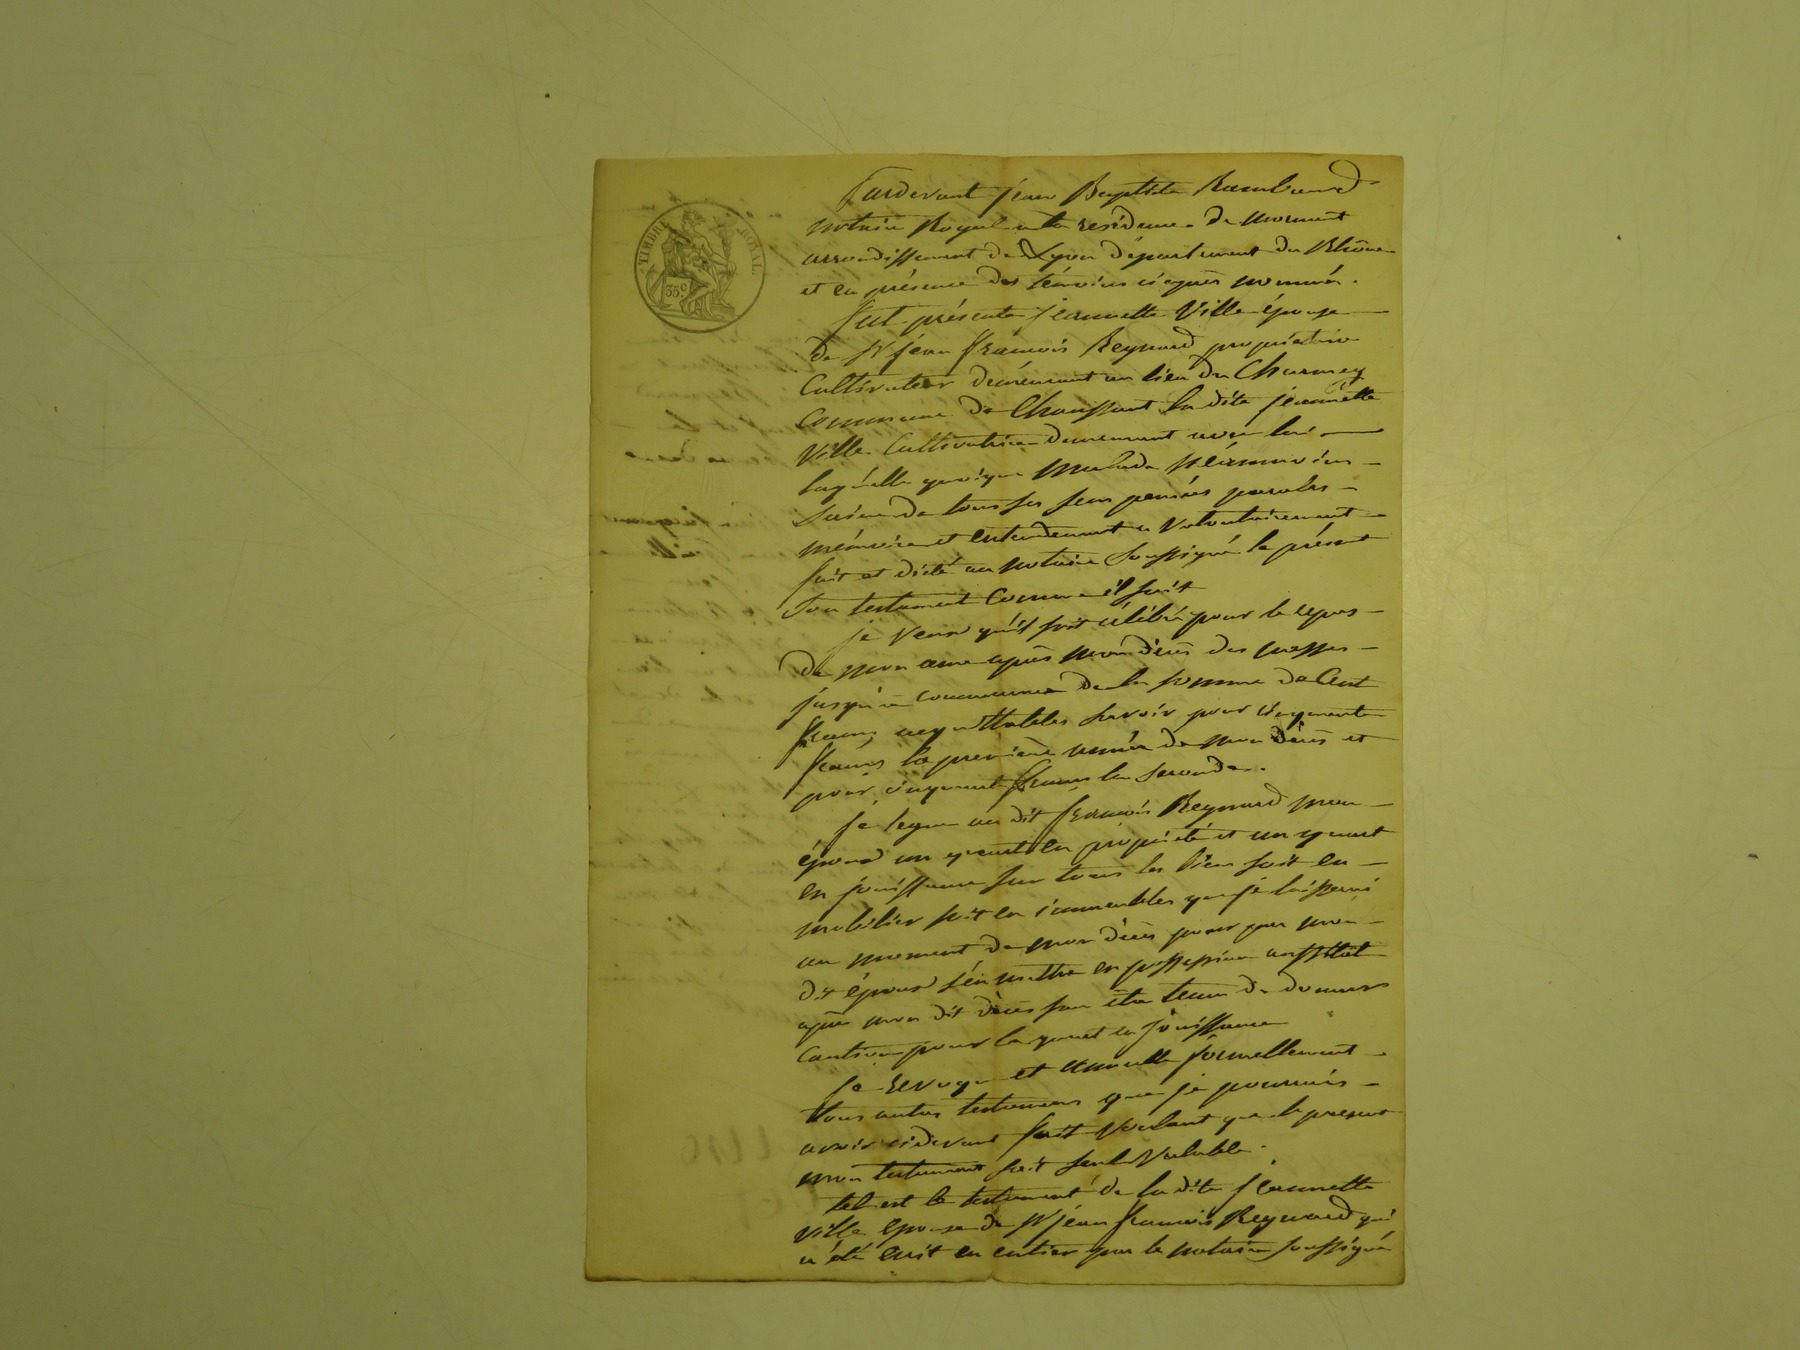 TIMBRE ROYAL.
35c
Pardevant jean Baptiste Rambaud
notaire Royal a la residence de mornant
arrondissement de Lyon département du Rhône
et en présence des témoins ciaprès nommés.
fut présente jeannette Ville épouse
de Sr jean francois Reynard propriétaire
Cultivateur demeurant au lieu du Charmey
commune de Chaussant la dite jeannette
Ville Cultivatrice demeurant avec lui
laquelle quoique malade néanmoins
saine de tous ses sens pensées paroles
mémoire et entendement a volontairement
fait et dicté au notaire soussigné le présent
son testament comme il suit
je veux qu'il soit célébré pour le repos
de mon ame après mon décès des messes
jusqu'a concurrence de la somme de Cent
francs acquittables savoir pour cinquante
francs la première année de mon décès et
pour cinquante francs la seconde.
je legue au dit francois Reynard mon
époux un quart en propriété et un quart
en jouissance sur tous les biens soit en
mobilier soit en immeubles que je laisserai
au moment de mon décès pour par mon
dit époux s'en mettre en possession aussitot
après mon dit décès sans être tenu de donner
caution pour le quart en jouissance
je revoque et annulle formellement
tous autres testamens que je pourrais
avoir cidevant fait voulant que le present
mon testament soit seul valable.
tel est le testament de la dite jeannette
Ville epouse de Sr jean francois Reynard qui
a été ecrit en entier par le notaire soussigné